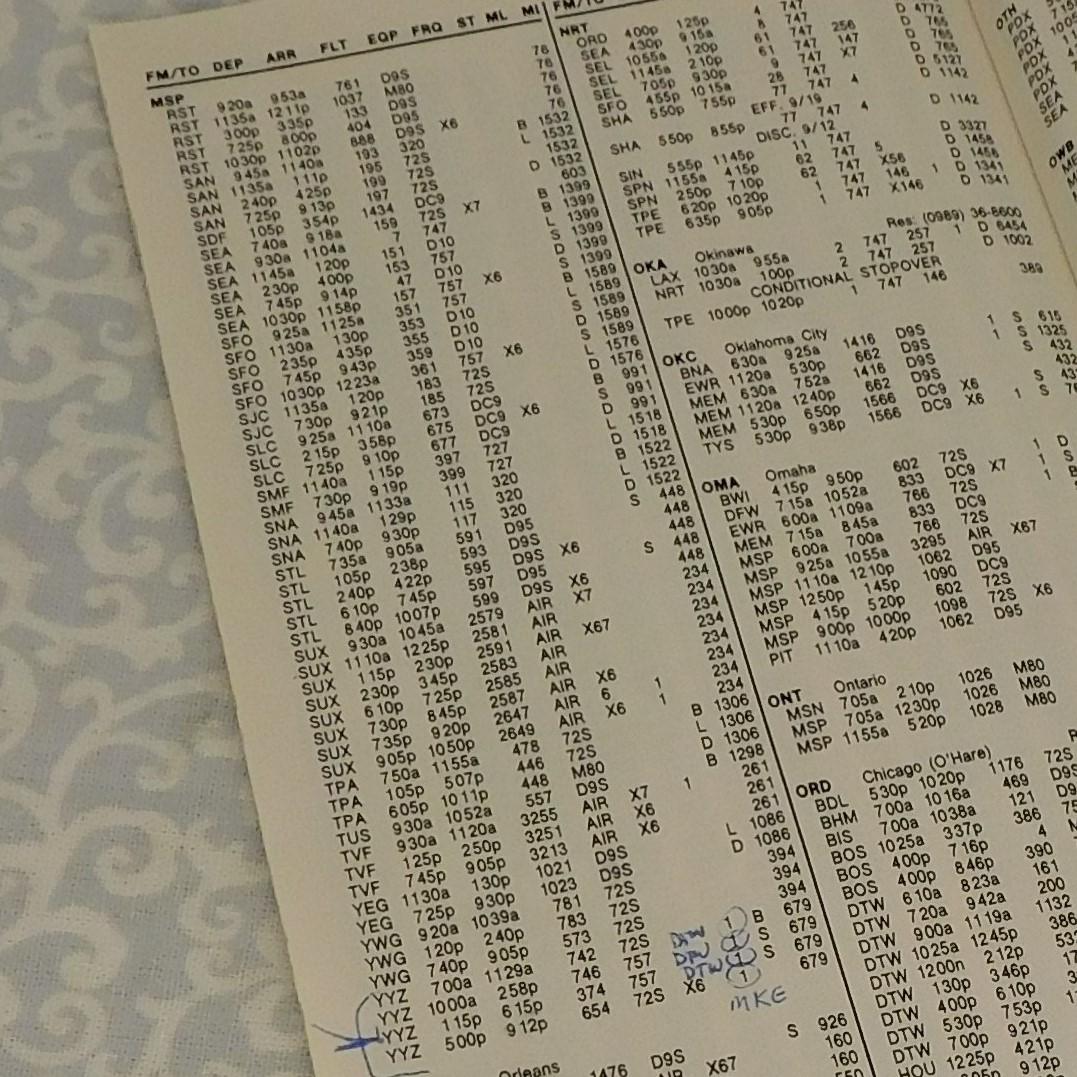 FM/TO DEP ARR FLT EQP FRQ ST ML MI
MSP
RST 920a 953a 761 D9S 76
RST 1135a 1211p 1037 M80 76
RST 300p 335p 133 D9S 76
RST 725p 800p 404 D95 76
RST 1030p 1102p 888 D9S X6 76
SAN 945a 1140a 193 320 B 1532
SAN 1135a 111p 195 72S L 1532
SAN 240p 425p 199 72S 1532
SAN 725p 913p 197 72S D 1532
SDF 105p 354p 1434 DC9 603
SEA 740a 918a 159 72S X7 B 1399
SEA 930a 1104a 7 747 B 1399
SEA 1145a 120p 151 D10 L 1399
SEA 230p 400p 153 757 S 1399
SEA 745p 914p 47 D10 D 1399
SEA 1030p 1158p 157 757 X6 S 1399
SFO 925a 1125a 351 757 B 1589
SFO 1130a 130p 353 D10 L 1589
SFO 235p 435p 355 D10 S 1589
SFO 745p 943p 359 D10 D 1589
SFO 1030p 1223a 361 757 X6 S 1589
SJC 1135a 120p 183 72S L 1576
SJC 730p 921p 185 72S D 1576
SLC 925a 1110a 673 DC9 B 991
SLC 215p 358p 675 DC9 X6 S 991
SLC 725p 910p 677 DC9 D 991
SMF 1140a 115p 397 727 L 1518
SMF 730p 919p 399 727 D 1518
SNA 945a 1133a 111 320 B 1522
SNA 1140a 129p 115 320 L 1522
SNA 740p 930p 117 320 D 1522
STL 735a 905a 591 D95 S 448
STL 105p 238p 593 D9S 448
STL 240p 422p 595 D9S X6 448
STL 610p 745p 597 D95 S 448
STL 840p 1007p 599 D9S X6 448
SUX 930a 1045a 2579 AIR X7 234
SUX 1110a 1225p 2581 AIR 234
SUX 115p 230p 2591 AIR X67 234
SUX 230p 345p 2583 AIR 234
SUX 610p 725p 2585 AIR X6 234
SUX 730p 845p 2587 AIR 6 234
SUX 735p 920p 2647 AIR X6 1 234
SUX 905p 1050p 2649
TPA 750a 1155a 478 72S B 1306
TPA 105p 507p 446 72S L 1306
TPA 605p 1011p 448 M80 D 1306
TUS 930a 1052a 557 D9S 1 B 1298
TVF 930a 1120a 3255 AIR X7 261
TVF 125p 250p 3251 AIR X6 261
TVF 745p 905p 3213 AIR X6 261
YEG 1130a 130p 1021 D9S L 1086
YEG 725p 930p 1023 D9S D 1086
YWG 920a 1039a 781 72S 394
YWG 120p 240p 783 72S 394
YWG 740p 905p 573 72S 394
YYZ 700a 1129a 742 72S DTW 1 B 679
YYZ 1000a 258p 746 757 1 S 679
YYZ 115p 615p 374 757 DTW 1 S 679
YYZ 500p 912p 654 72S X6 1 679
MKE
Orleans
1476 D9S S 926
X67 160
160
FM/TO
NRT
ORD 400p 125p 4 747 D 4772
SEA 430p 915a 8 747
SEL 1055a 120p 61 747 256 D 765
SEL 1145a 210p 61 747 147 D 765
SEL 705p 930p 9 747 X7 D 765
SFO 455p 1015a 28 747 D 5127
SHA 550p 755p 77 747 4 D 1142
EFF. 9/19
SHA 550p 855p 77 747 4 D 1142
DISC. 9/12
SIN 555p 1145p 11 747 D 3327
SPN 1155a 415p 62 747 5 D 1458
SPN 250p 710p 62 747 X56 D 1458
TPE 620p 1020p 1 747 146 1 D 1341
TPE 635p 905p 1 747 X146 D 1341
OKA Okinawa Res: (0989) 36-8600
LAX 1030a 955a 2 747 257 1 D 6454
NRT 1030a 100p 2 747 257 D 1002
CONDITIONAL STOPOVER
TPE 1000p 1020p 1 747 146 389
OKC Oklahoma City
BNA 630a 925a 1416 D9S 1 S 615
EWR 1120a 530p 662 D9S 1 S 1325
MEM 630a 752a 1416 D9S S 432
MEM 1120a 1240p 662 D9S
MEM 530p 650p 1566 DC9 X6 S
TYS 530p 938p 1566 DC9 X6 1 S
OMA Omaha
BWI 415p 950p 602 72S 1 D
DFW 715a 1052a 833 DC9 X7 1 S
EWR 600a 1109a 766 72S 1 B
MEM 715a 845a 833 DC9
MSP 600a 700a 766 72S
MSP 925a 1055a 3295 AIR X67
MSP 1110a 1210p 1062 D95
MSP 1250p 145p 1090 DC9
MSP 415p 520p 602 72S
MSP 900p 1000p 1098 72S X6
PIT 1110a 420p 1062 D95
ONT Ontario
MSN 705a 210p 1026 M80
MSP 705a 1230p 1026 M80
MSP 1155a 520p 1028 M80
ORD Chicago (O'Hare)
BDL 530p 1020p 1176 72S
BHM 700a 1016a 469 D9S
BIS 700a 1038a 121
BOS 1025a 337p 386
BOS 400p 716p 4
BOS 400p 846p 390
DTW 610a 823a 161
DTW 720a 942a 200
DTW 900a 1119a 1132
DTW 1025a 1245p 386
DTW 1200n 212p
DTW 130p 346p
DTW 400p 610p
DTW 530p 753p
DTW 700p 921p
HOU 1225p 421p
912p
OTH
PDX
PDX
PDX
PDX
SEA
SEA
OWB